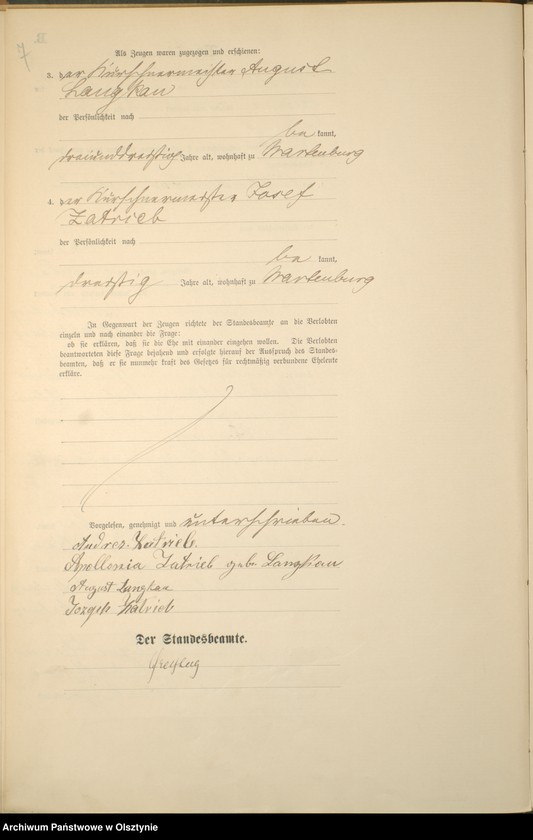 7
Als Zeugen waren zugezogen und erschienen:
3. der Kürschnermeister August
Langkau
der Persönlichkeit nach
be kannt,
dreiunddreißig Jahre alt, wohnhaft zu Wartenburg
4. der Kürschnermeister Josef
Zatrieb
der Persönlichkeit nach
be kannt,
dreißig Jahre alt, wohnhaft zu Wartenburg
In Gegenwart der Zeugen richtete der Standesbeamte an die Verlobten
einzeln und nach einander die Frage:
ob sie erklären, daß sie die Ehe mit einander eingehen wollen. Die Verlobten
beantworteten diese Frage bejahend und erfolgte hierauf der Ausspruch des Standes-
beamten, daß er sie nunmehr kraft des Gesetzes für rechtmäßig verbundene Eheleute
erkläre.
Vorgelesen, genehmigt und unterschrieben.
Andres Zatrieb
Apollonia Zatrieb geb. Langkau
August Langkau
Jozeph Zatrieb
Der Standesbeamte.
Archiwum Państwowe w Olsztynie